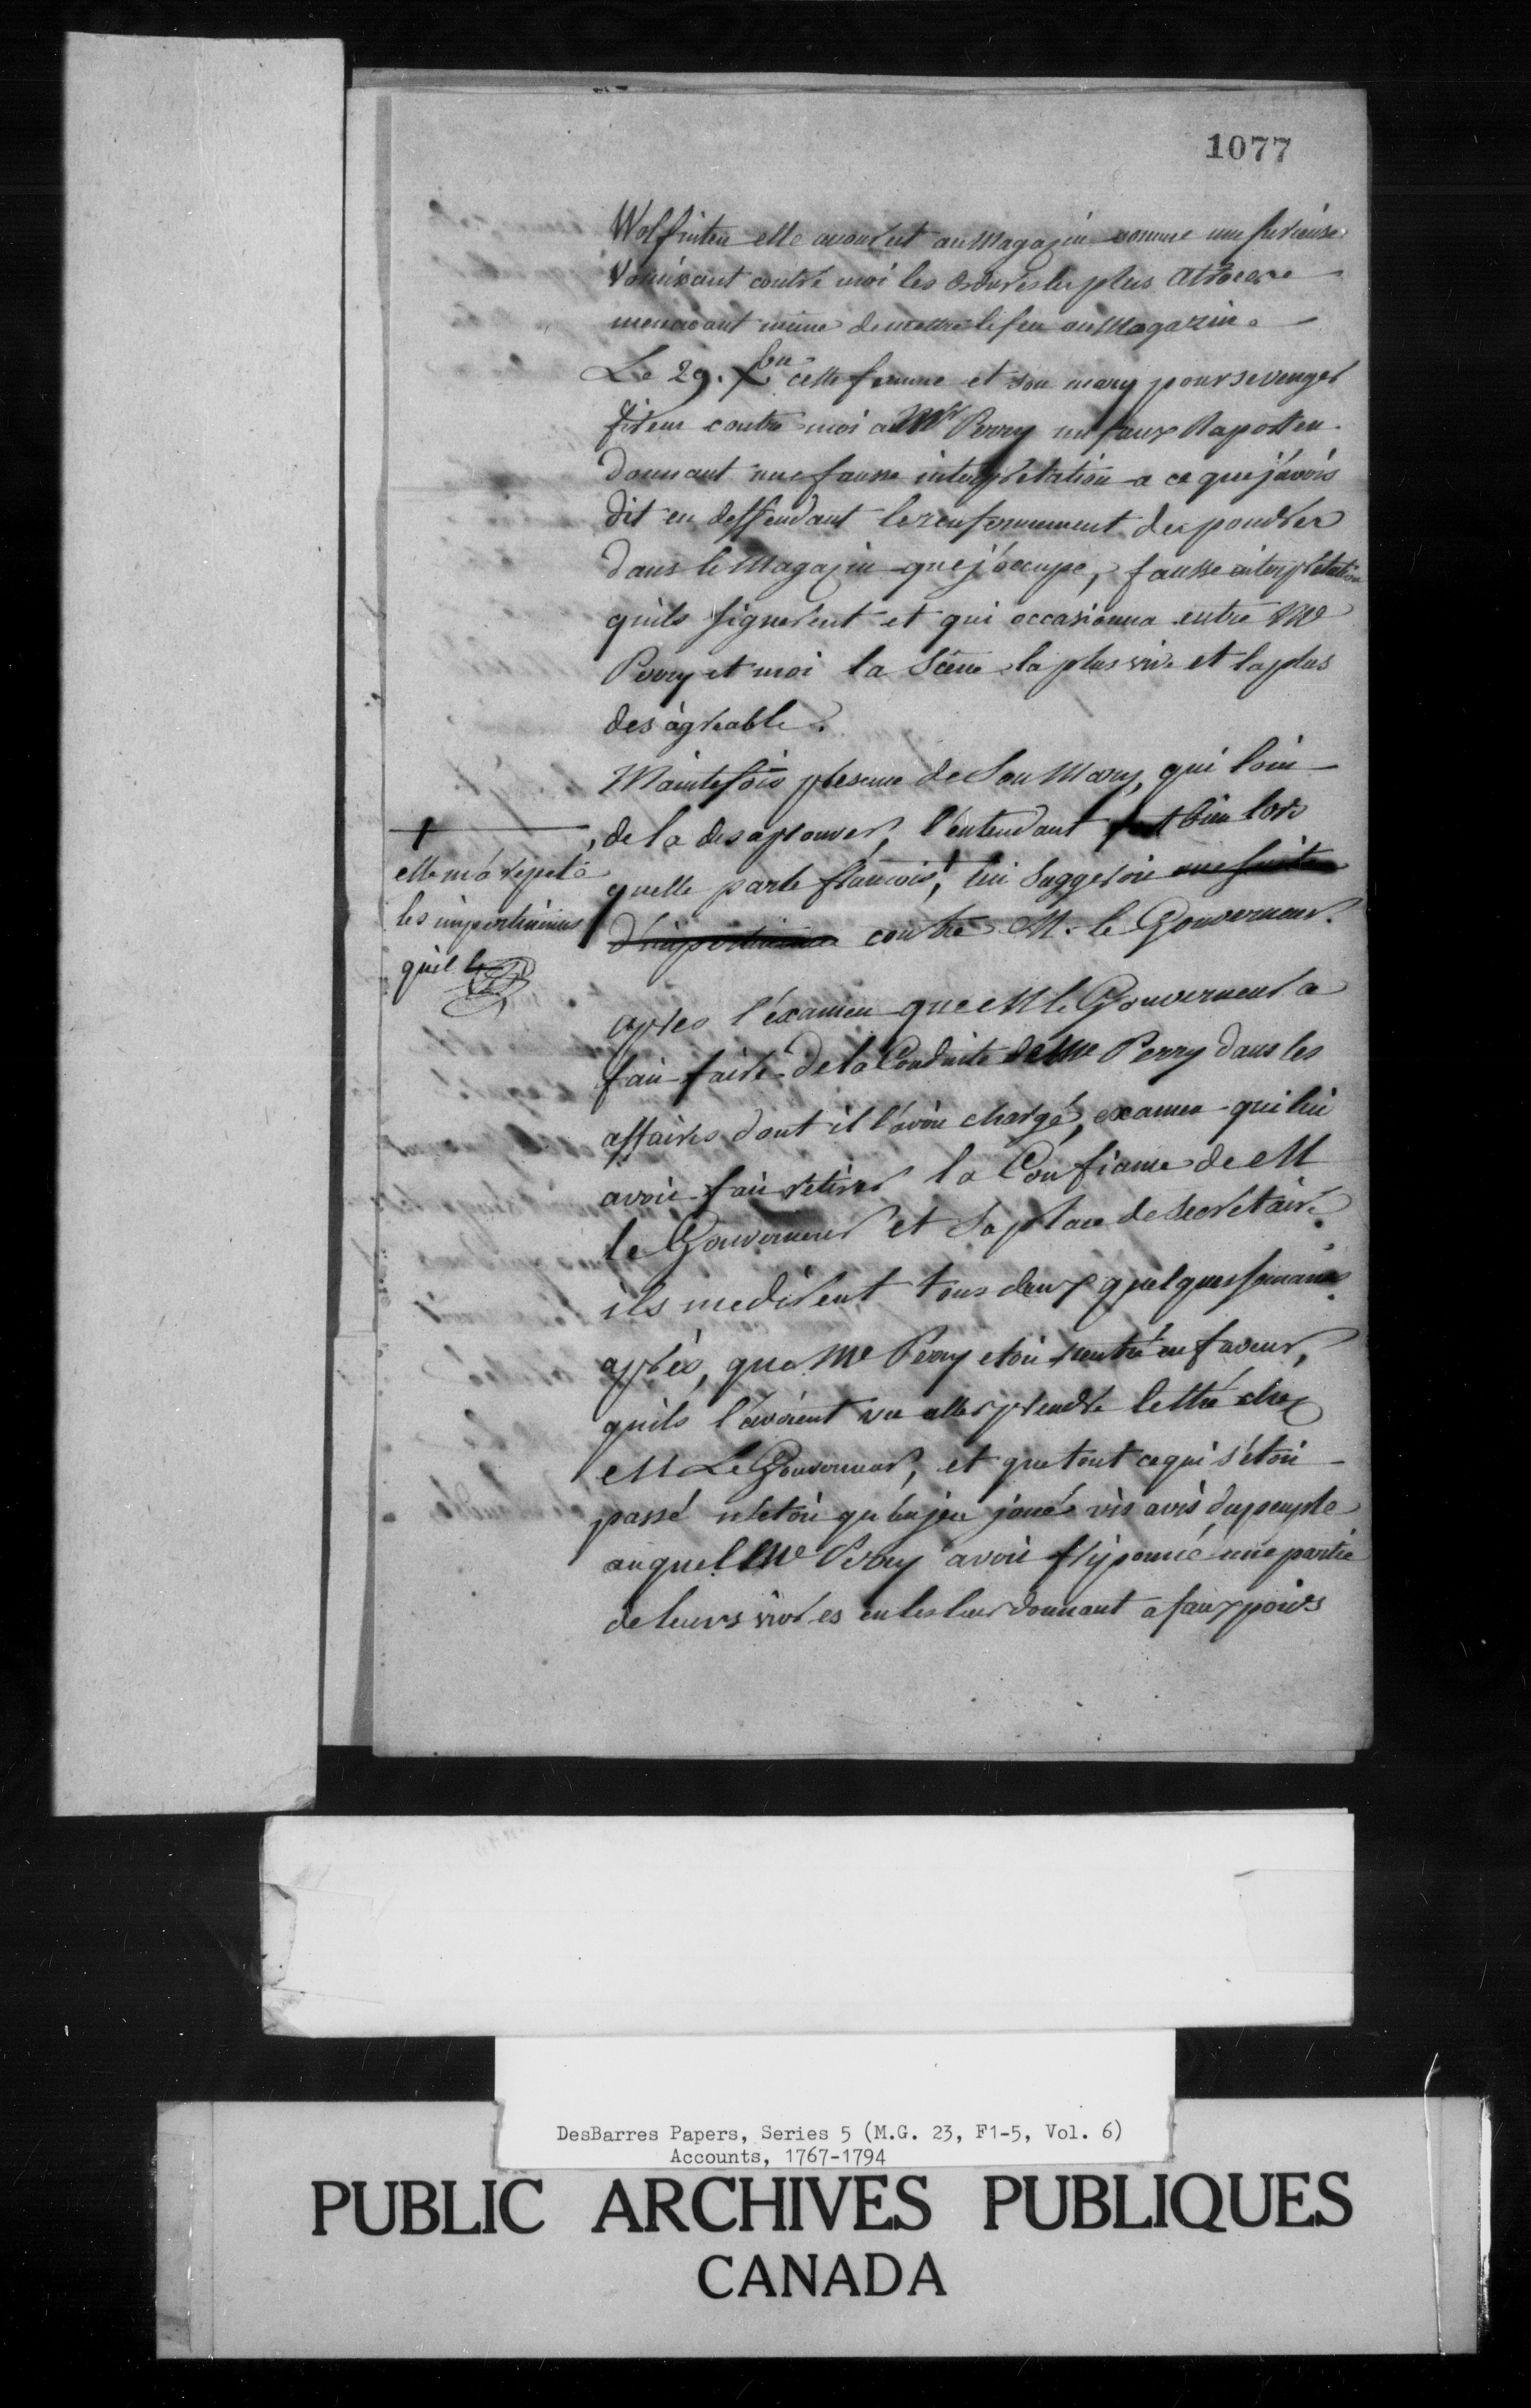 1077
elle accourut au Magazin comme une furieuse
Vomissant contre moi les ordures les plus atroces
menacant même de mettre le feu au Magazin.
Le 29. Xbre cette femme et son mary pour se venger
firent contre moi a Mr Perry un faux Raport en
donnant une fausse interpretation a ce que j'avois
dit en deffendant le renfermement des poudres
dans le Magazin que j'occupe, fausse interpretation
quils signerent et qui occasionna entre Mr
Perry et moi la Scene la plus vive et la plus
desàgreable.
Maintefois presence de Son Mary, qui loin
, de la desaprouver, l'entendant fort bien lors
quelle parle francois, lui suggeroit une suite
d'impertinences contre M. le Gouverneur.
+
elle m'a repeté
les impertinences
quil
apres l'examen que M le Gouverneur a
fait faire de la Conduite de Mr Perry dans les
affaires dont il l'avoit chargé, examen qui lui
avoit fait retirer la Confiance de M
le Gouverneur et Sa place de Secretaire.
ils me dirent tous deux quelques semaines
après, que Mr Perry etoit rentré en faveur,
quils l'avoient vu aller prendre le thé chez
M Le Gouverneur, et que tout ce qui s'étoit
passé n'etoit qu'un jeu joué vis avis du peuple
auquel Mr Perry avoit friponné une partie
de leurs vivres en les leur donnant a faux poids
DesBarres Papers, Series 5 (M.G. 23, F1-5, Vol. 6)
Accounts, 1767-1794
PUBLIC ARCHIVES PUBLIQUES
CANADA